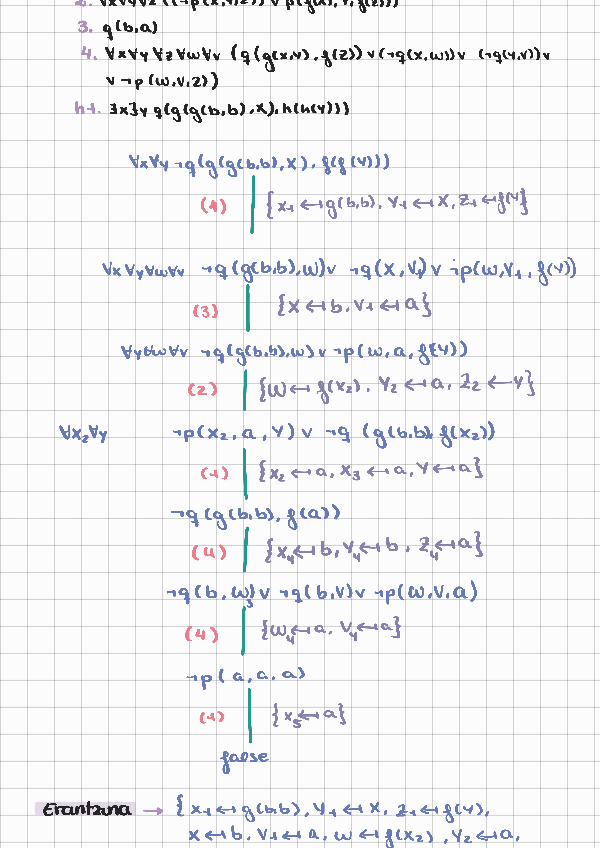 2. ∀x∀y∀z ((¬p(x,y,z)) ∨ p(f(x),y,f(z)))
3. q(b,a)
4. ∀x∀y∀z∀w∀v (q(g(x,y),f(z)) ∨ (¬q(x,w)) ∨ (¬q(y,v)) ∨
∨ ¬p(w,v,z))
h1. ∃x∃y q(g(g(b,b),x), h(h(y)))
∀x∀y ¬q(g(g(b,b),x), f(f(y)))
(4) {x₁ ← g(b,b), y₁ ← x, z₁ ← f(y)}
∀x∀y∀w∀v ¬q(g(b,b),w) ∨ ¬q(x,v₁) ∨ ¬p(w,v₁,f(y))
(3) {x ← b, v₁ ← a}
∀y∀w∀v ¬q(g(b,b),w) ∨ ¬p(w,a,f(y))
(2) {w ← f(x₂), y₂ ← a, z₂ ← y}
∀x₂∀y ¬p(x₂,a,y) ∨ ¬q(g(b,b) f(x₂))
(1) {x₂ ← a, x₃ ← a, y ← a}
¬q(g(b,b), f(a))
(4) {x₄ ← b, y₄ ← b, z₄ ← a}
¬q(b,w₃) ∨ ¬q(b,v) ∨ ¬p(w,v,a)
(4) {w₄ ← a, v₄ ← a}
¬p(a,a,a)
(1) {x₅ ← a}
false
Erantzuna → {x₁ ← g(b,b), y₁ ← x, z₁ ← f(y),
x ← b, v₁ ← a, w ← f(x₂), y₂ ← a,